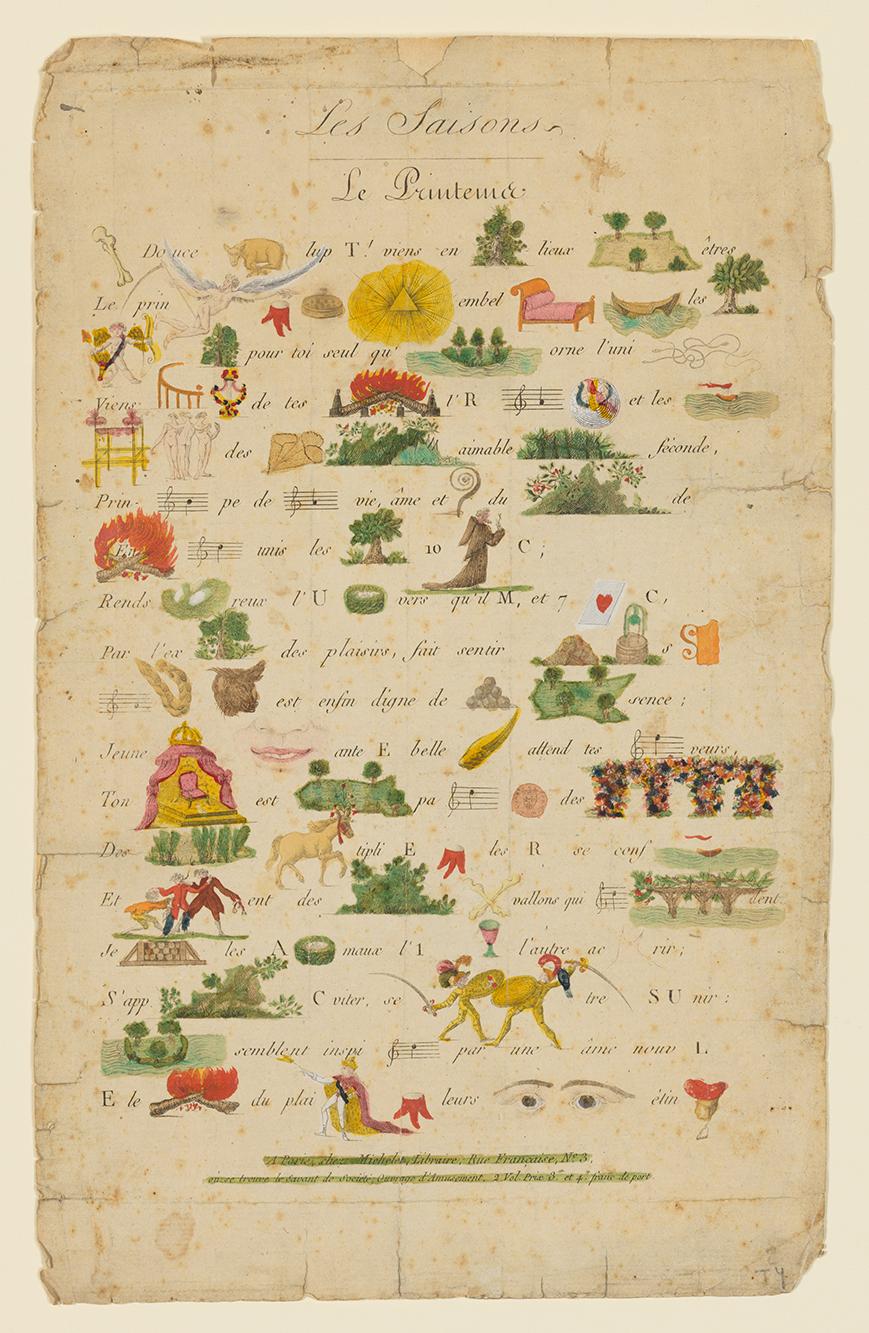 Les Saisons
Le Printems
Douce lup T! viens en lieux êtres
Le prin embel les
pour toi seul qu' orne l'uni
Viens de tes l'R et les
des aimable féconde,
Prin- pe de vie, âme et du de
Et unis les 10 C;
Rends reux l'U vers qu'il M, et 7 C,
Par l'ex des plaisirs, fait sentir s S
est enfin digne de sence;
Jeune ante E belle attend tes veurs,
Ton est pa des
Des tipli E les R se conf
Et ent des vallons qui dent
Je les A maux l'1 l'autre ac rir;
S'app C viter, se tre S U nir:
semblent inspi par une âme nouv L
E le du plai leurs étin
A Paris, chez Michelet, Libraire, Rue Française, No. 3,
où se trouve le Savant de Société, Ouvrage d'Amusement, 2 Vol. Prix 3 et 4 franc de port